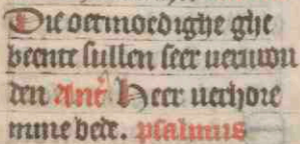 Die oetmoedighe ghe
beente sullen seer verurou
den Ant̄ Heer verhore
mine bede. psalmus